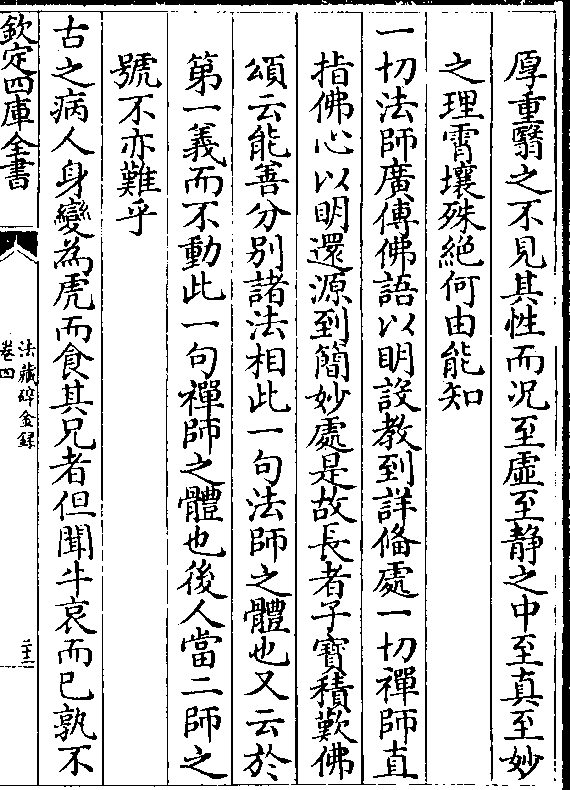 厚重翳之不見其性而况至虛至静之中至真至妙
之理霄壤殊絶何由能知
一切法師廣傳佛語以明設教到詳備處一切禪師直
指佛心以明還源到簡妙處是故長者子寶積歎佛
頌云能善分别諸法相此一句法師之體也又云於
第一義而不動此一句禪師之體也後人當二師之
號不亦難乎
古之病人身變為虎而食其兄者但聞牛哀而已孰不
欽定四庫全書
法藏碎金錄
卷四
二十二